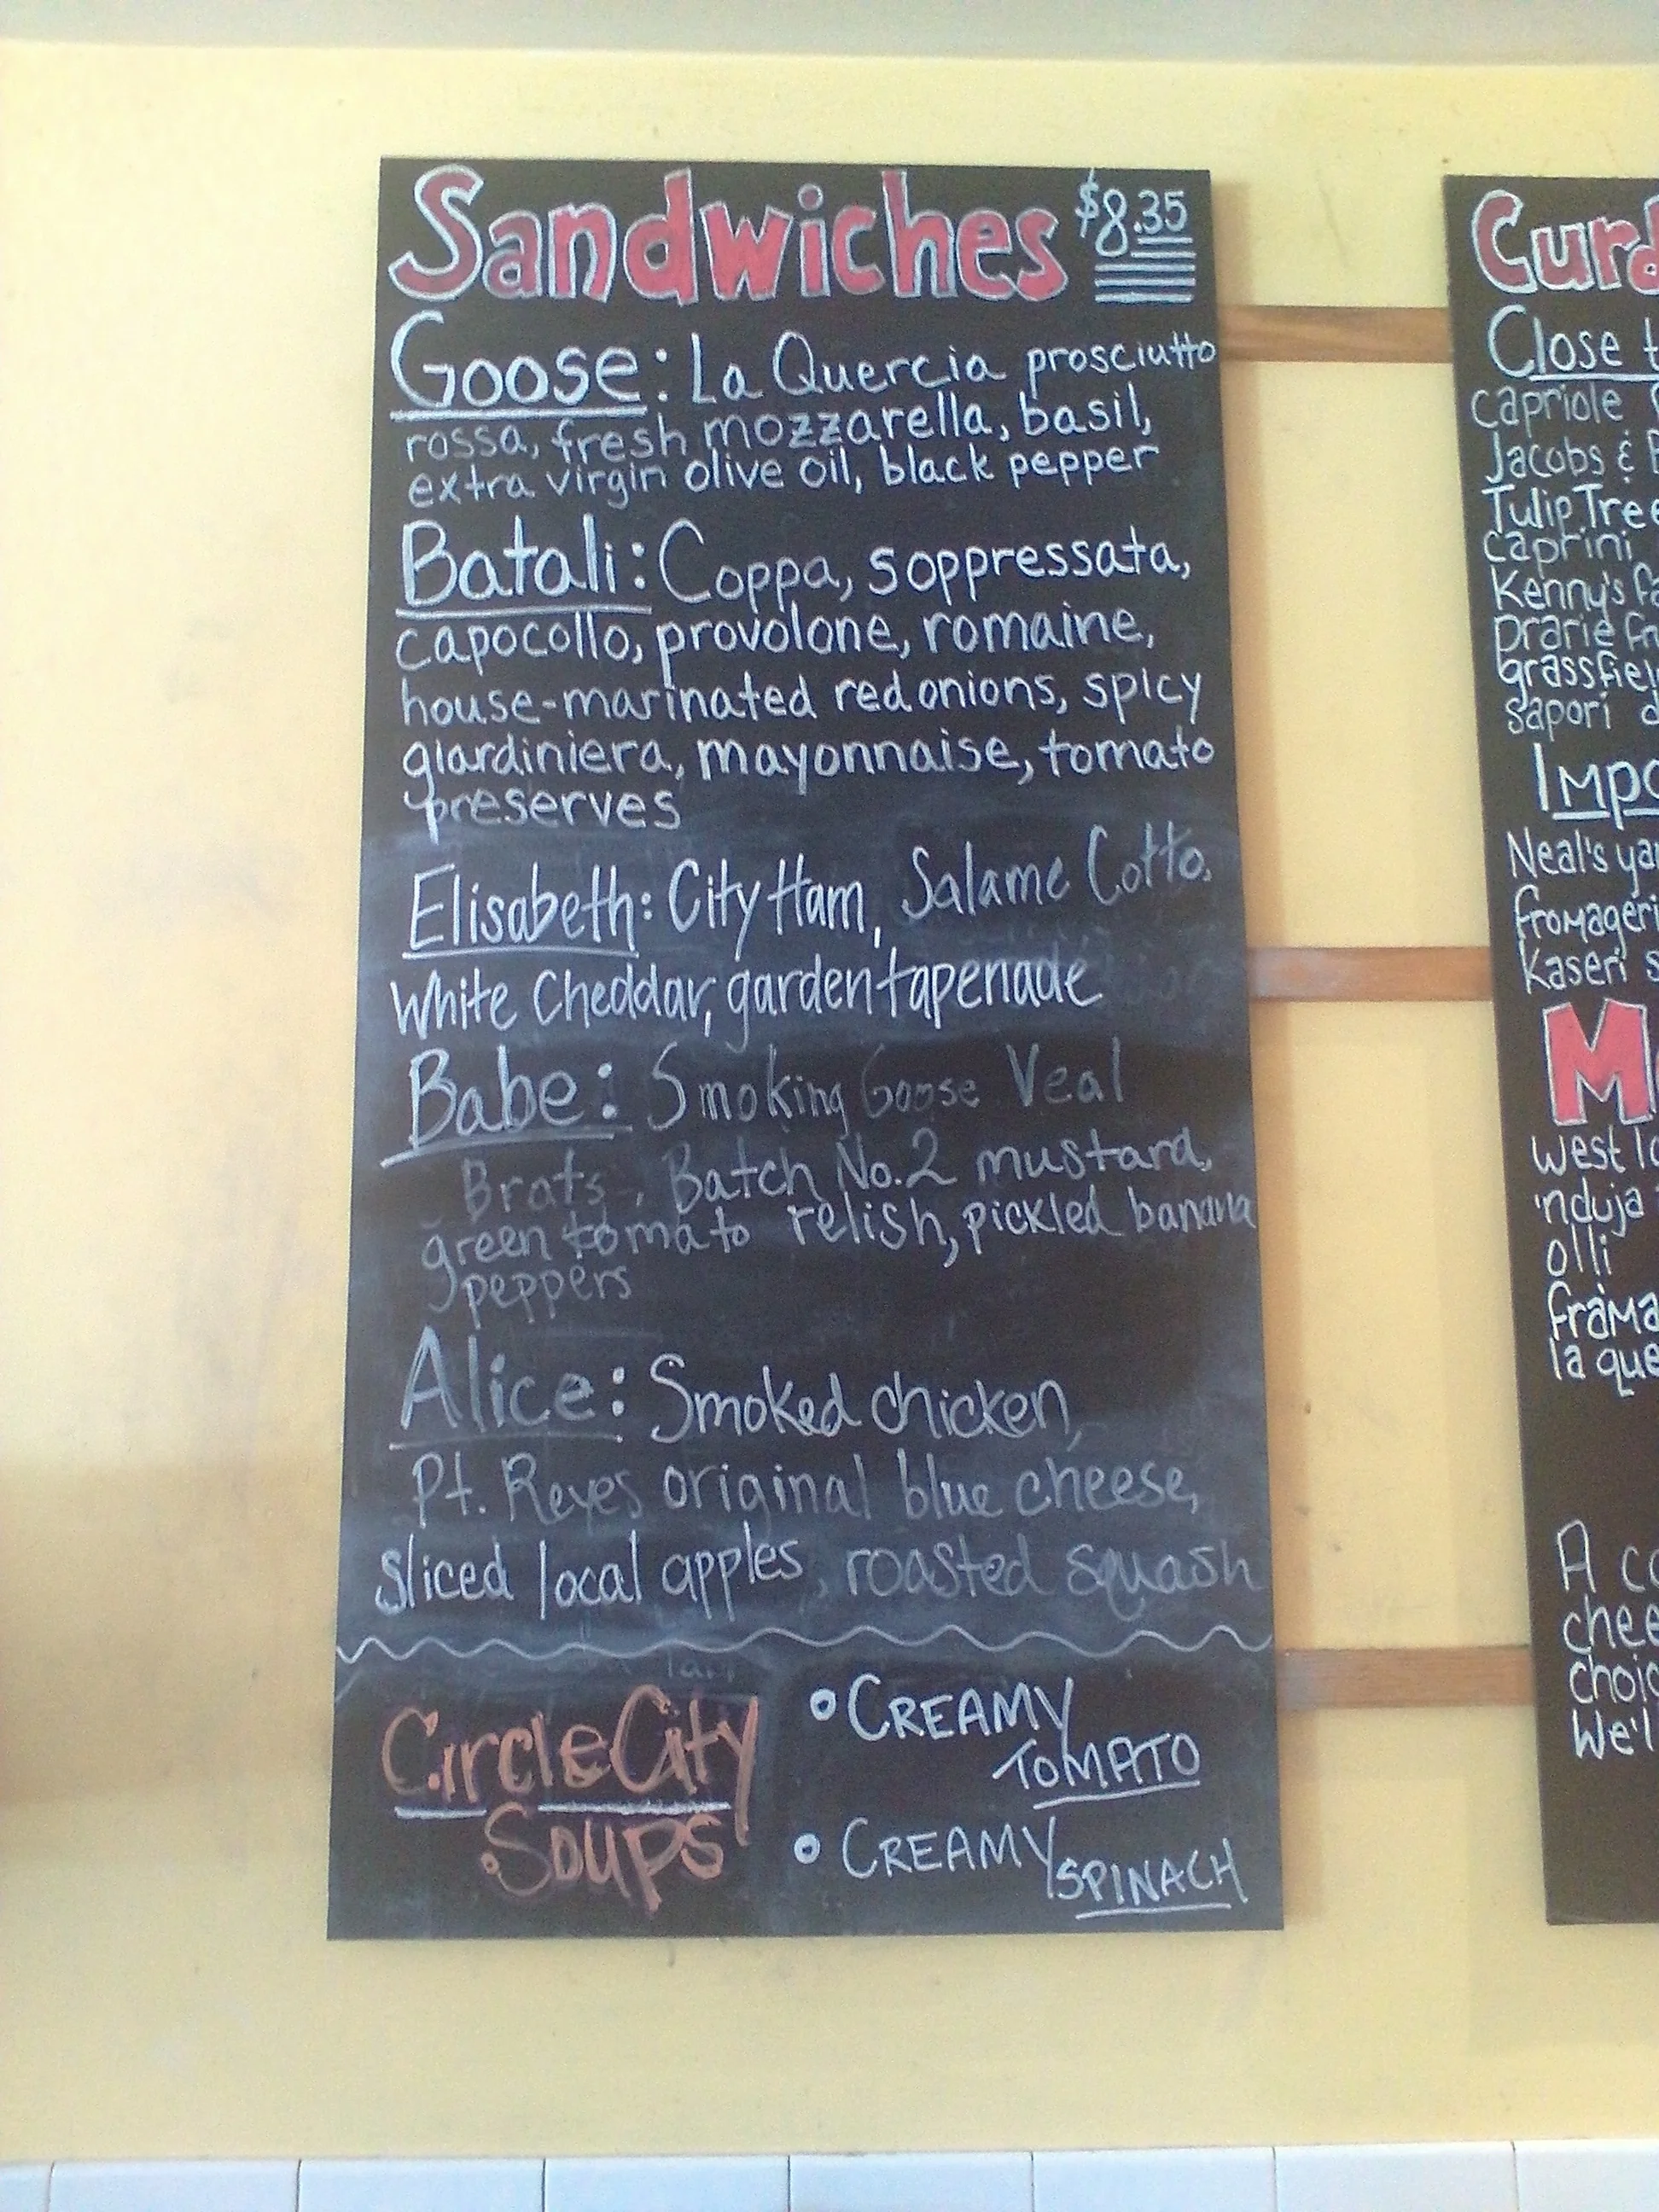 Sandwiches $8.35
Goose: La Quercia prosciutto
rossa, fresh mozzarella, basil,
extra virgin olive oil, black pepper
Batali: Coppa, soppressata,
capocollo, provolone, romaine,
house-marinated red onions, spicy
giardiniera, mayonnaise, tomato
preserves
Elisabeth: City Ham, Salame Cotto,
White Cheddar, garden tapenade
Babe: Smoking Goose Veal
Brats, Batch No.2 mustard,
green tomato relish, pickled banana
peppers
Alice: Smoked chicken,
Pt. Reyes original blue cheese,
sliced local apples, roasted squash
Circle City
Soups
• CREAMY
TOMATO
• CREAMY SPINACH
Curd
Close t
capriole
Jacobs &
Tulip Tree
caprini
Kenny's fa
prarie fru
grassfiel
sapori d
Impo
Neal's yar
fromageri
Kaseri s
M
west lo
'nduja
olli
frama
la que
A co
chee
choic
We'l